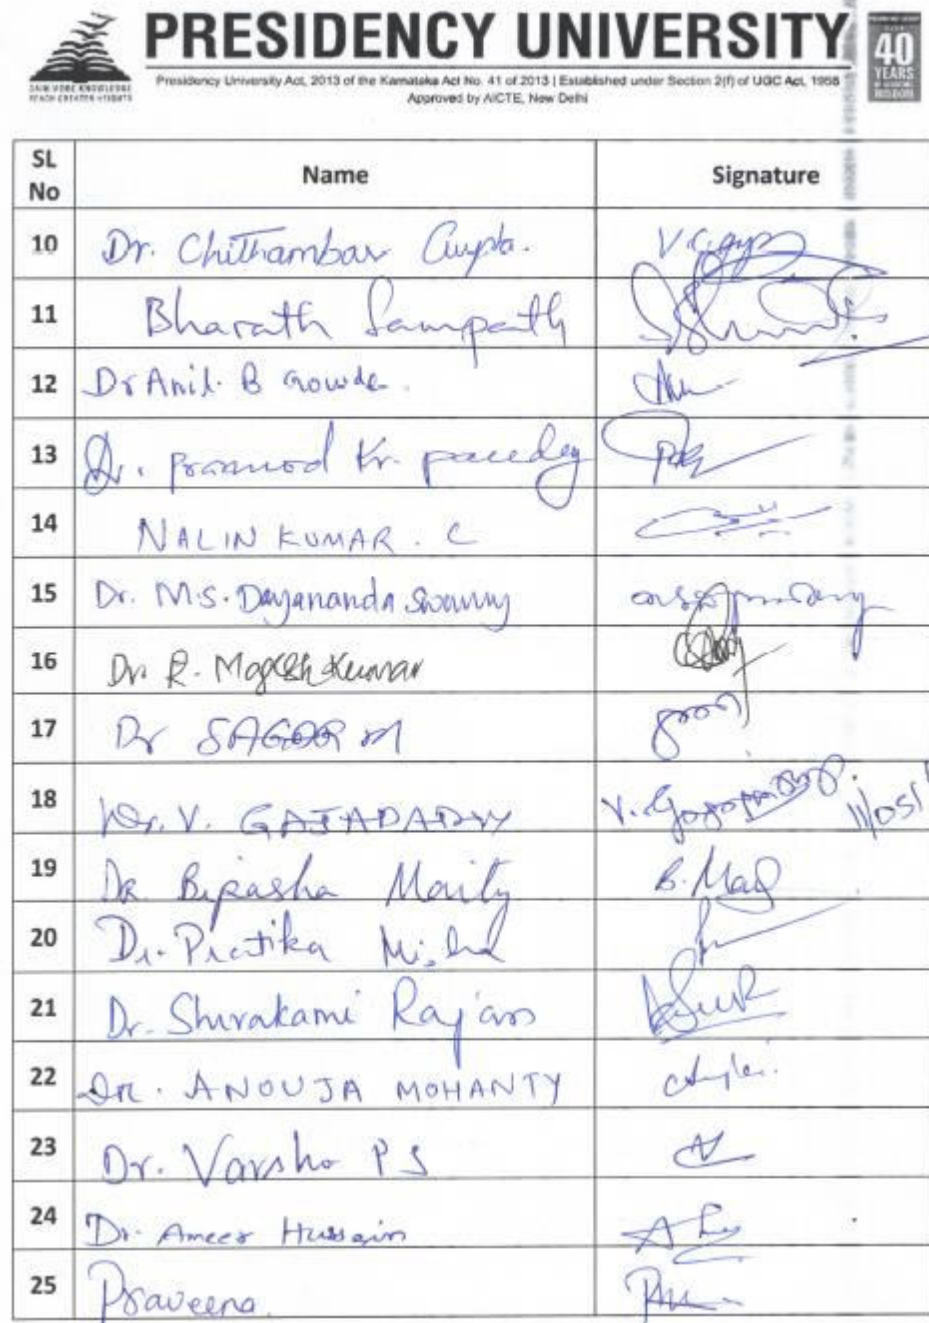 PRESIDENCY UNIVERSITY
Presidency University Act, 2013 of the Karnataka Act No. 41 of 2013 | Established under Section 2(f) of UGC Act, 1956
Approved by AICTE, New Delhi
GAIN MORE KNOWLEDGE
REACH GREATER HEIGHTS
40
YEARS
SL No Name Signature
10 Dr. Chithambar Gupta. V.C.Gupta
11 Bharath Sampath
12 Dr Anil. B Gowda.
13 Dr. Pramod Kr. pandey
14 NALIN KUMAR. C
15 Dr. M.S. Dayananda Swamy
16 Dr. R. Magesh Kumar
17 Dr SAGAR M
18 Dr. V. GAJAPATHY V.
19 Dr. Bipasha Maity B. Mai
20 Dr. Pratika Mishra
21 Dr. Shivakami Rajan
22 DR. ANOUJA MOHANTY
23 Dr. Varsha P S
24 Dr. Ameer Hussain
25 Praveena.